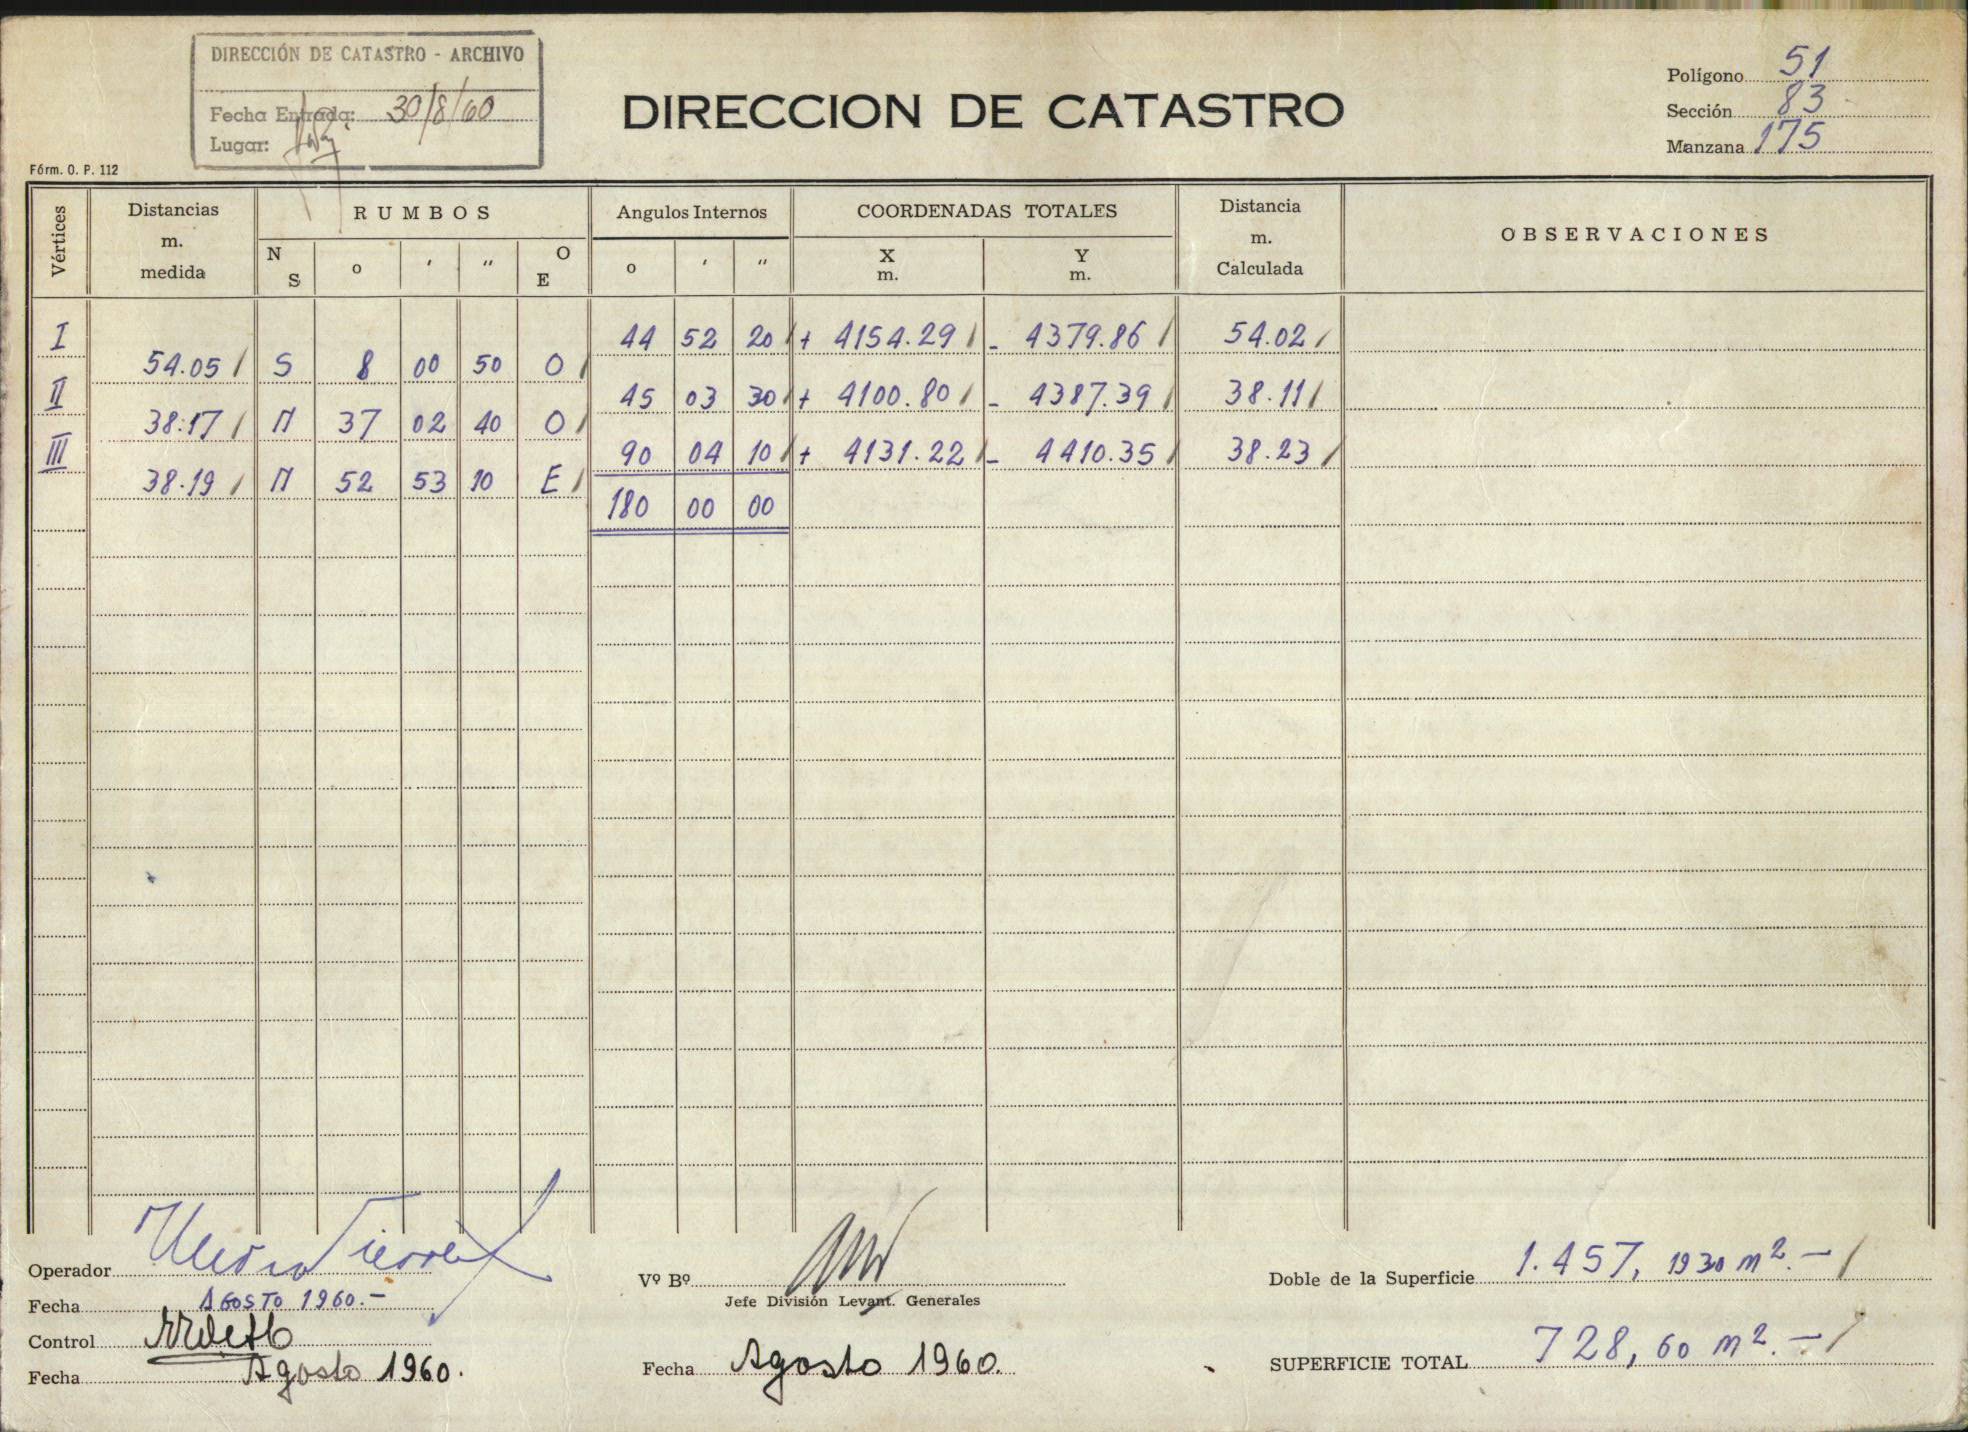 DIRECCIÓN DE CATASTRO - ARCHIVO
Fecha Entrada: 30/8/60
Lugar:
DIRECCION DE CATASTRO
Polígono 51
Sección 83
Manzana 175
Fórm. O. P. 112
Vértices
Distancias m. medida
RUMBOS
Angulos Internos
COORDENADAS TOTALES
Distancia m. Calculada
OBSERVACIONES
N S o ′ ″ O E
o ′ ″
X m.
Y m.
I 44 52 20 + 4154.29 - 4379.86 54.02
54.05 S 8 00 50 O
II 45 03 30 + 4100.80 - 4387.39 38.11
38.17 N 37 02 40 O
III 90 04 10 + 4131.22 - 4410.35 38.23
38.19 N 52 53 10 E
180 00 00
Operador
Fecha AGOSTO 1960.-
Control
Fecha Agosto 1960.
Vº Bº
Jefe División Levant. Generales
Fecha Agosto 1960.
Doble de la Superficie 1.457, 1930 m². -
SUPERFICIE TOTAL 728, 60 m². -